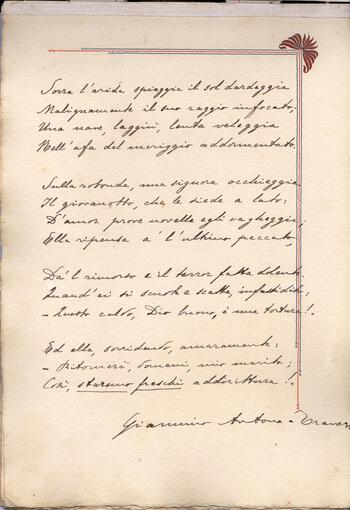 Sovra l'arida spiaggia il sol dardeggia
Malignamente il suo raggio infocato;
Una nave, laggiù, lenta veleggia
Nell'afa del meriggio addormentato.
Sulla rotonda, una signora occhieggia
Il giovanotto, che le siede a lato:
D'amor prove novelle egli vagheggia,
Ella ripensa a l'ultimo peccato,
Da'l rimorso e il terror fatta dolente.
Quand'ei si scuote e scatta, infastidito:
- Questo caldo, Dio buono, è una tortura!.
Ed ella, sorridendo, amaramente:
- Ritornerà, domani, mio marito;
Così, staremo freschi addirittura!.
Giannino Antona-Traversi